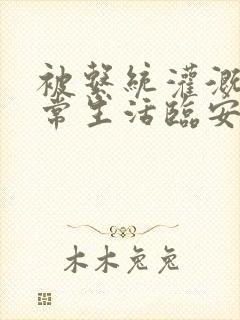 被繫統灌溉
常生活臨安
木木兔兔